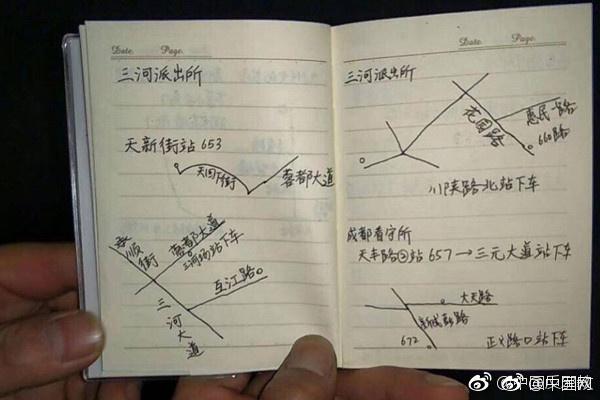 Date. Page.
三河派出所
天新街站 653
天回下街
蓉都大道
顺街
蓉都大道
三河场站下车
互江路
三河大道
Date. Page.
三河派出所
花园路
惠民路
660路
川陕路北站下车
成都看守所
天丰路②站 657 → 三元大道站下车
大天路
新成彭路
672
正义路口站下车